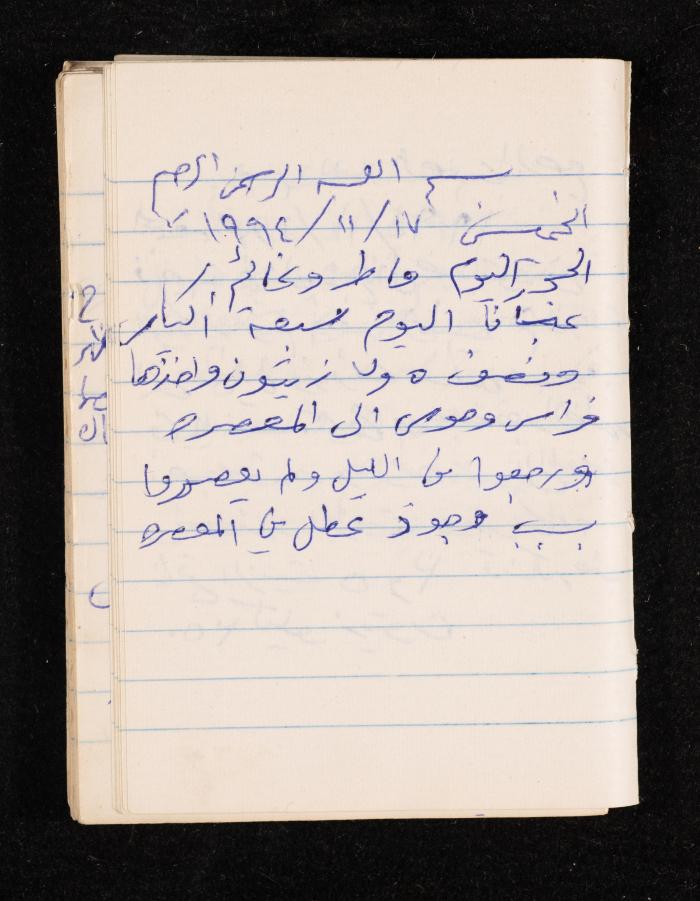 بسم الله الرحمن الرحيم
الخميس ١٧/١١/١٩٩٤
الجو اليوم ماطر وغائم
عبانا اليوم سبعة اكياس
ونصف زيتون واخذها
فراس وموسى الى المعصره
ورجعوا من الليل ولم يعصروها
بسبب وجود عطل في المعصره